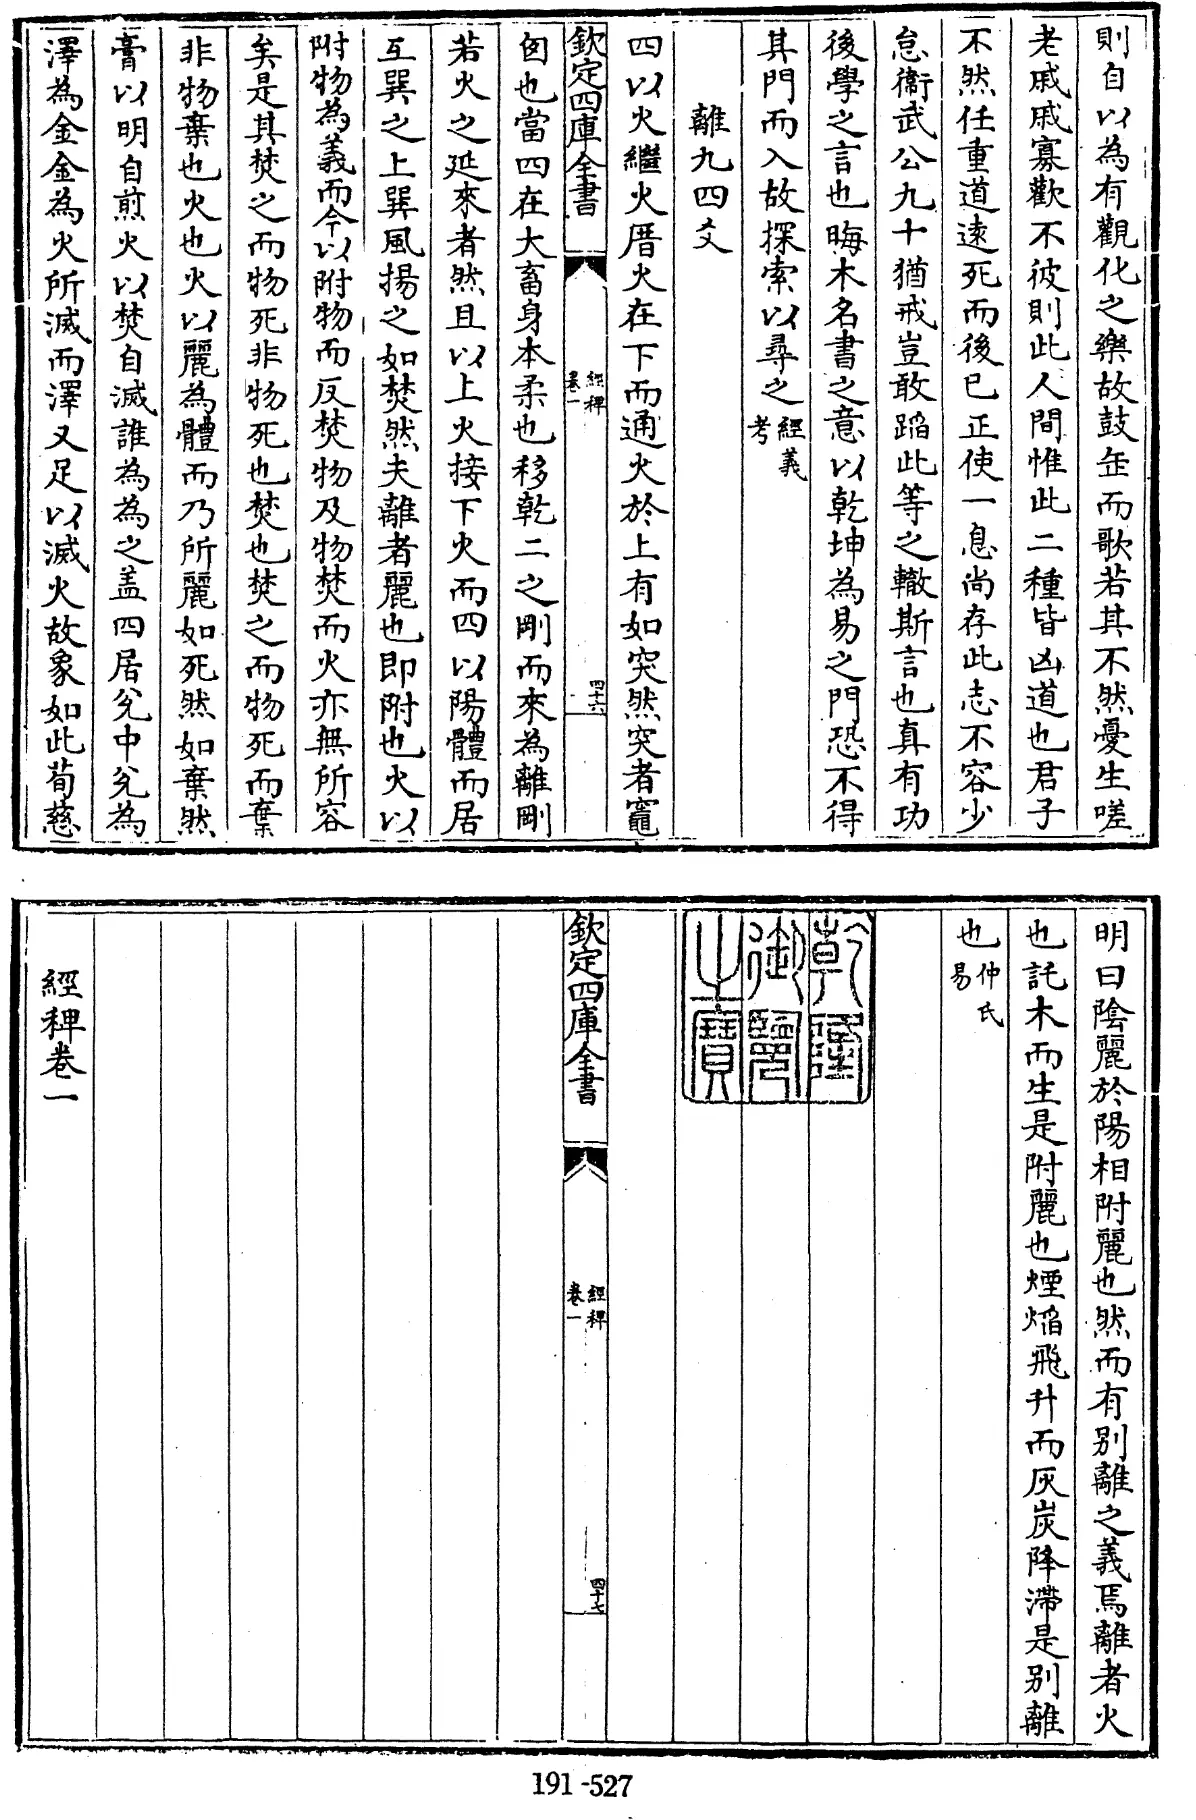 則自以為有觀化之樂故鼓缶而歌若其不然憂生嗟
老戚戚寡歡不彼則此人間惟此二種皆凶道也君子
不然任重道逺死而後已正使一息尚存此志不容少
怠衛武公九十猶戒豈敢蹈此等之轍斯言也真有功
後學之言也晦木名書之意以乾坤為易之門恐不得
其門而入故探索以尋之經義考
離九四爻
四以火繼火厝火在下而通火於上有如突然突者竈
欽定四庫全書
經稗
卷一
四十六
囱也當四在大畜身本柔也移乾二之剛而來為離剛
若火之延來者然且以上火接下火而四以陽體而居
互巽之上巽風揚之如焚然夫離者麗也即附也火以
附物為義而今以附物而反焚物及物焚而火亦無所容
矣是其焚之而物死非物死也焚也焚之而物死而棄
非物棄也火也火以麗為體而乃所麗如死然如棄然
膏以明自煎火以焚自滅誰為為之盖四居兊中兊為
澤為金金為火所滅而澤又足以滅火故象如此荀慈
明曰陰麗於陽相附麗也然而有别離之義焉離者火
也託木而生是附麗也煙焰飛升而灰炭降滯是别離
也仲氏易
乾隆御覽之寶
欽定四庫全書
經稗
卷一
四十七
經稗卷一
191-527